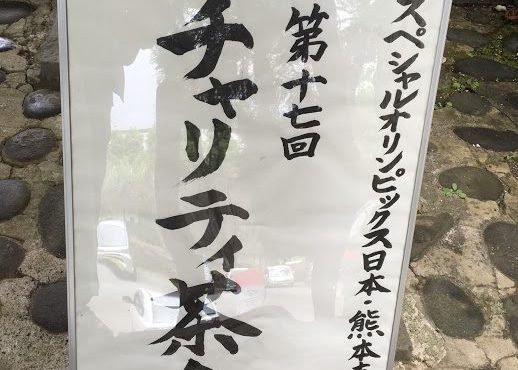 スペシャルオリンピックス日本・熊本
第十七回
チャリティ茶